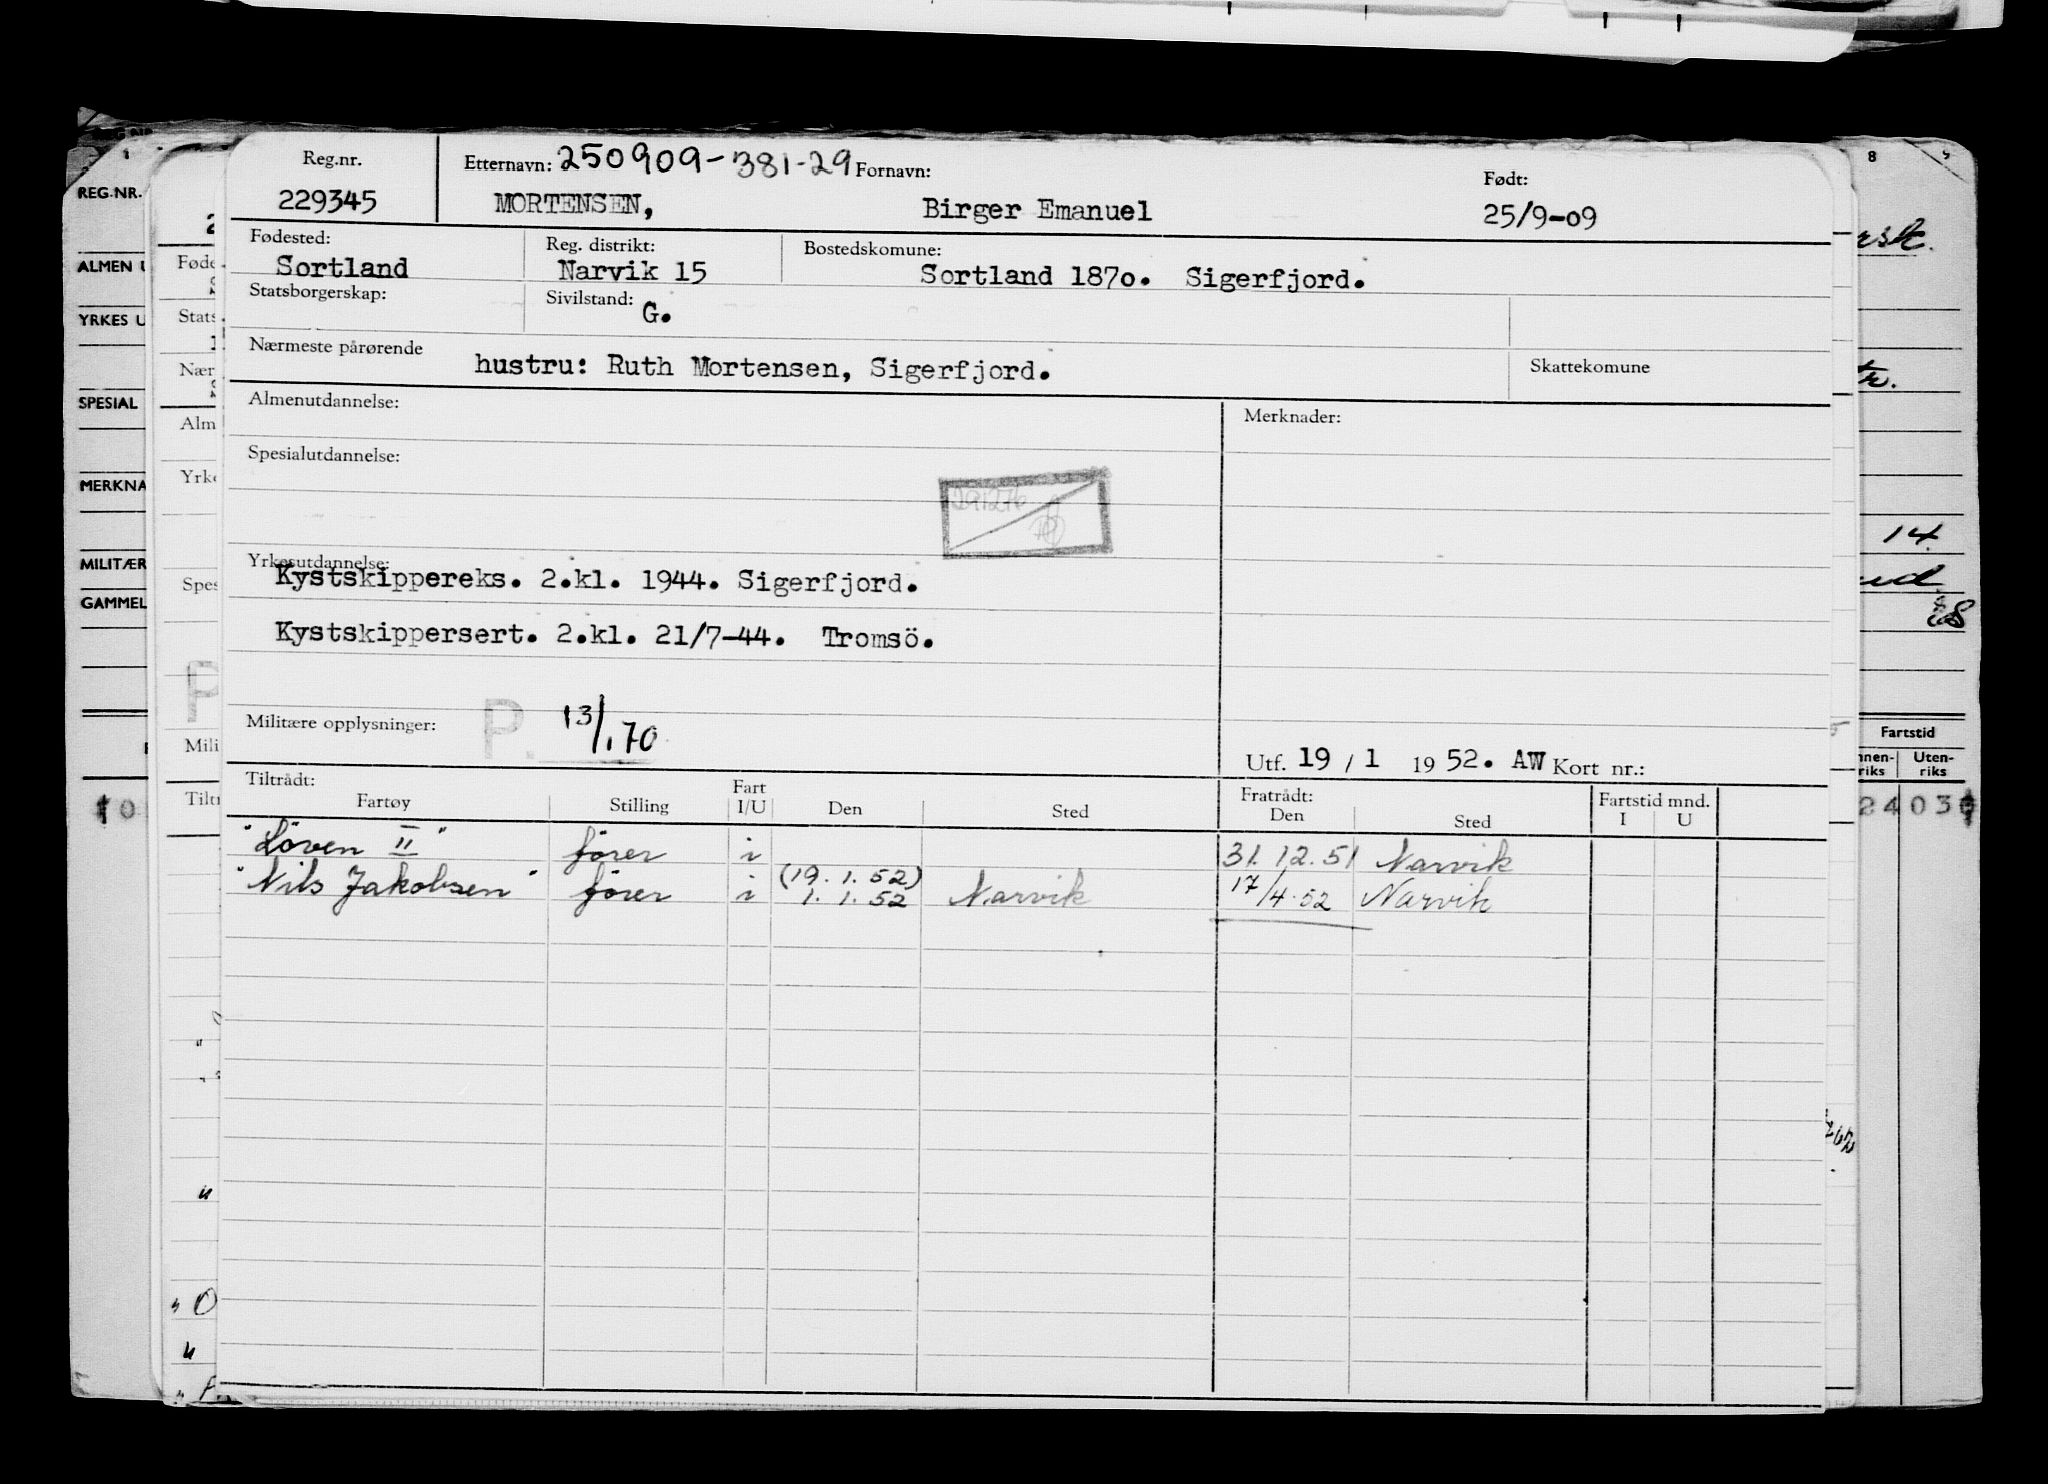 Reg.nr. Etternavn: 250909-381-29 Fornavn: Født:
229345 MORTENSEN, Birger Emanuel 25/9-09
Fødested: Reg. distrikt: Bostedskomune:
Sortland Narvik 15 Sortland 1870. Sigerfjord.
Statsborgerskap: Sivilstand: G.
Nærmeste pårørende hustru: Ruth Mortensen, Sigerfjord. Skattekomune
Almenutdannelse: Merknader:
Spesialutdannelse:
291276
Yrkesutdannelse:
Kystskippereks. 2.kl. 1944. Sigerfjord.
Kystskippersert. 2.kl. 21/7-44. Tromsö.
Militære opplysninger: P. 13/1 70
Utf. 19 / 1 19 52. AW Kort nr.:
Tiltrådt: Fratrådt: Fartstid mnd.
Fartøy Stilling Fart I/U Den Sted Den Sted I U
"Löven II" fører i 31.12.51 Narvik
"Nils Jakobsen" fører i (19.1.52) 1.1.52 Narvik 17/4.52 Narvik
REG.NR.
ALMEN U
YRKES U
SPESIAL
MERKNA
MILITÆR
GAMMEL
Føde
Stats
Nær
Alm
Yrke
Spes
P
Mili
Tiltr
8
14
Fartstid
Uten-
riks
24 03